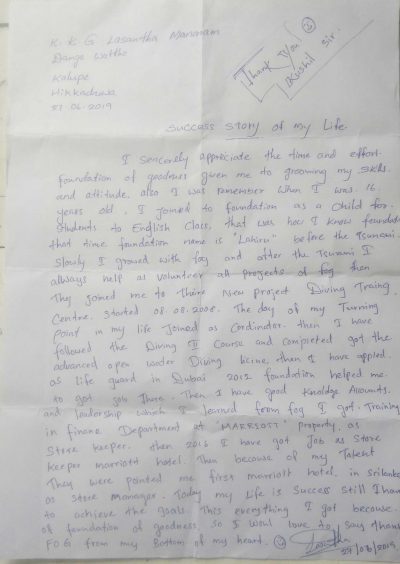 K. K. G Lasantha Manaram
Danga watthe
Kalupe
Hikkaduwa
27.06.2019
Thank You
Kushil Sir.
Success Story of my Life.
I sencerely appreciate the time and effort
foundation of goodness given me to grooming my skills.
and attitude. also I was remember when I was 16
years old. I joined to foundation as a child for
students to English Class. that was how I know foundation
that time foundation name is "Lahiru" before the Tsunami.
Slowly I growed with fog and after the Tsunami I
allways help as volunteer all projects of fog then
They joined me to There New project Diving Traing
Centre. Started 08.08.2008. The day of my Turning
Point in my life Joined as Cordinator. then I have
followed the Diving II Course and completed got the
advanced open water Diving licine, then I have appled.
as life guard in Dubai 2012 foundation helped me.
to got job There. Then I have good Knoldge Accounts.
and leadership which I learned form fog I got Training
in finane Department at "MARRIOTT" property, as
Store Keeper. then 2016 I have got job as Store
Keeper marriott hotel. Then because of my Talent
They were pointed me first marriott hotel. in srilanka
as Store Manager. Today my Life is Success Still I have
to achieve the goals This everything I got because
of foundation of goodness, so I woul love to say thanks
FOG from my Bottom of my heart.
27/06/2019